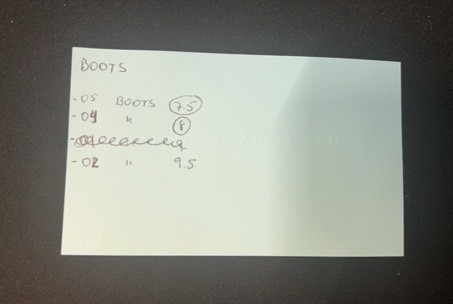 BOOTS
-05 BOOTS 7.5
-04 " 8
-02 " 9.5